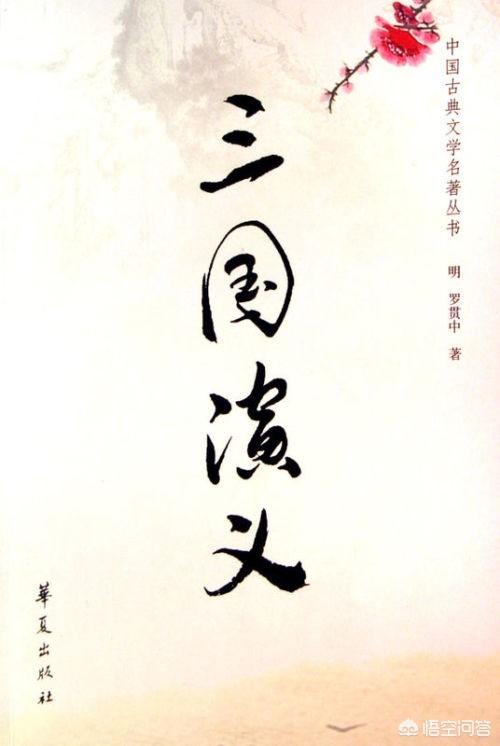 中国古典文学名著丛书 明 罗贯中 著
三国演义
華夏出版社
悟空问答